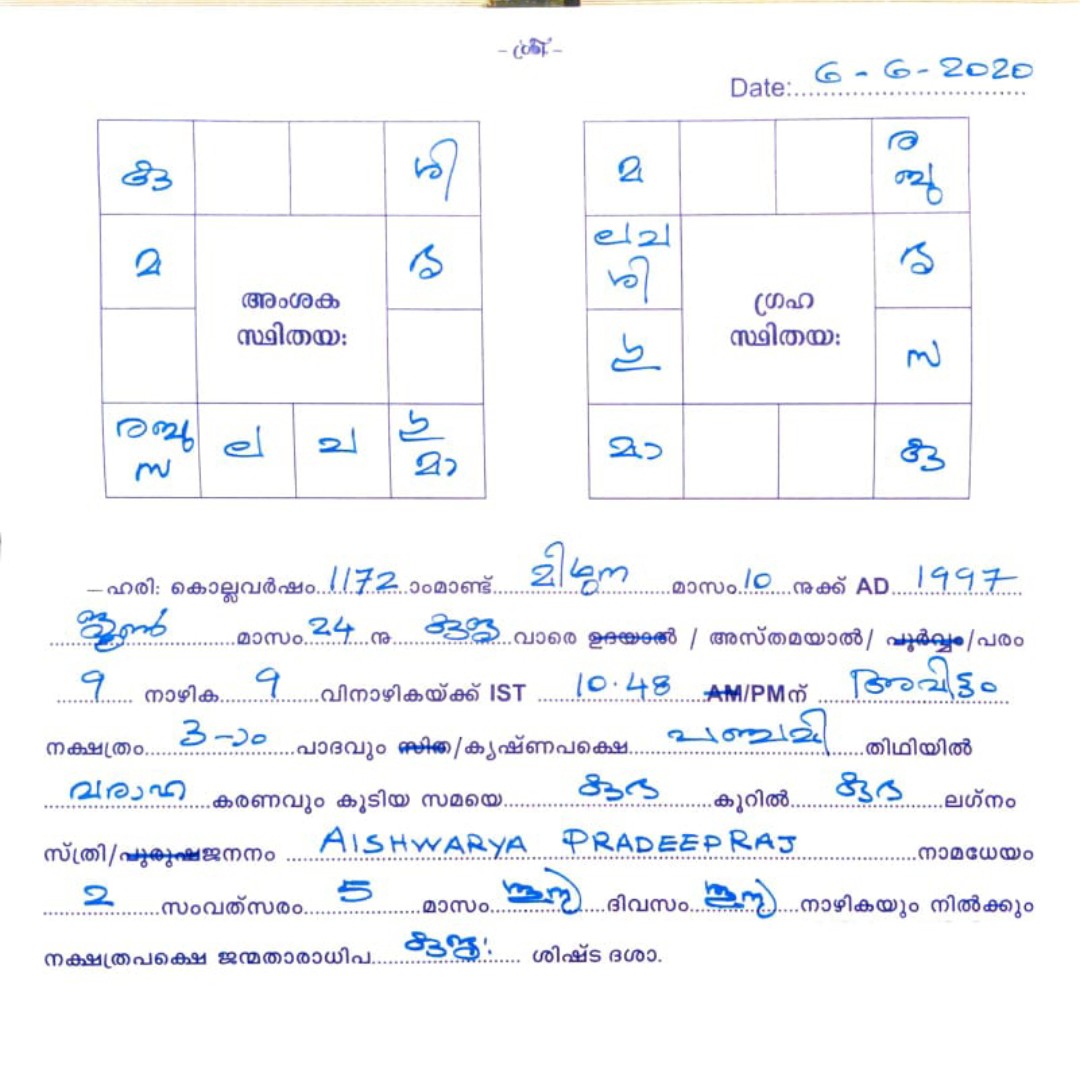 - ശ്രീ -
Date: 6 - 6 - 2020
കു ശി
മ ര
അംശക
സ്ഥിതയ:
രബു
സ ല ച ഗു
മാ
മ ര
ബു
ലച
ശി
ഗ്രഹ
സ്ഥിതയ:
ഗു സ
മാ കു
– ഹരി: കൊല്ലവർഷം 1172 ാംമാണ്ട് മിഥുന മാസം 10 നുക്ക് AD 1997
ജൂൺ മാസം 24 നു കുജ വാരെ ഉദയാൽ / അസ്തമയാൽ/ പൂർവ്വം/പരം
9 നാഴിക 9 വിനാഴികയ്ക്ക് IST 10.48 AM/PMന് അവിട്ടം
നക്ഷത്രം 3-ാം പാദവും സിത/കൃഷ്ണപക്ഷെ പഞ്ചമി തിഥിയിൽ
വരാഹ കരണവും കൂടിയ സമയെ കുംഭ കൂറിൽ കുംഭ ലഗ്നം
സ്ത്രി/പുരുഷജനനം AISHWARYA PRADEEPRAJ നാമധേയം
2 സംവത്സരം 5 മാസം ദിവസം നാഴികയും നിൽക്കും
നക്ഷത്രപക്ഷെ ജന്മതാരാധിപ കുജ: ശിഷ്ട ദശാ.